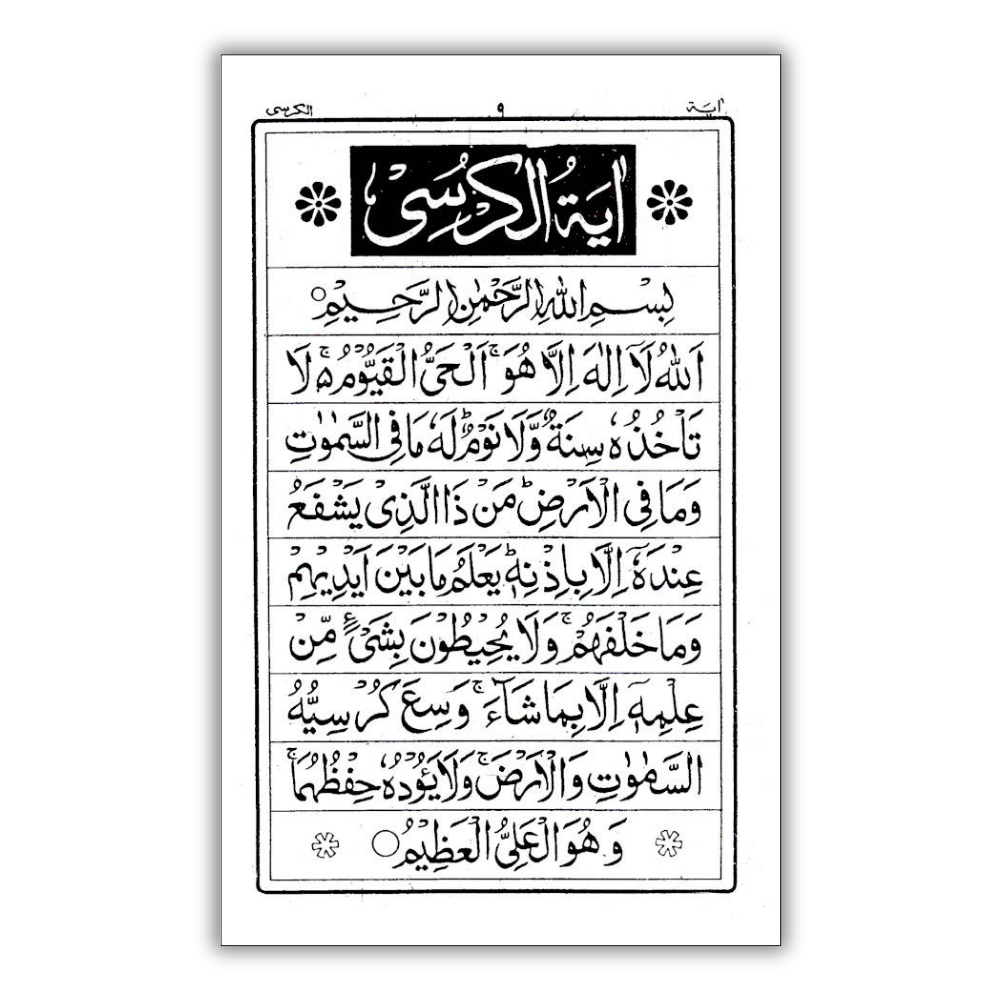 اٰیة ۹ الكرسی
اٰیَةُ الْكُرْسِیْ
بِسْمِ اللّٰهِ الرَّحْمٰنِ الرَّحِیْمِ○
اَللّٰهُ لَاۤ اِلٰهَ اِلَّا هُوَ ۚ اَلْحَیُّ الْقَیُّوْمُ ۵ ۚ لَا
تَاْخُذُهٗ سِنَةٌ وَّلَا نَوْمٌ ؕ لَهٗ مَا فِی السَّمٰوٰتِ
وَمَا فِی الْاَرْضِ ؕ مَنْ ذَا الَّذِیْ یَشْفَعُ
عِنْدَهٗۤ اِلَّا بِاِذْنِهٖ ؕ یَعْلَمُ مَا بَیْنَ اَیْدِیْهِمْ
وَمَا خَلْفَهُمْ ۚ وَلَا یُحِیْطُوْنَ بِشَیْءٍ مِّنْ
عِلْمِهٖۤ اِلَّا بِمَا شَآءَ ۚ وَسِعَ كُرْسِیُّهُ
السَّمٰوٰتِ وَالْاَرْضَ ۚ وَلَا یَئُوْدُهٗ حِفْظُهُمَا ۚ
وَهُوَ الْعَلِیُّ الْعَظِیْمُ○